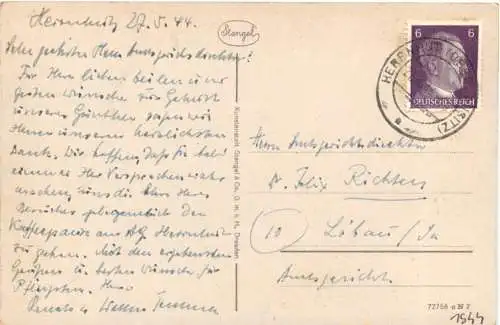 Herrnhut 27. 5. 44.
Sehr geehrter Herr Amtsgerichtsdirektor!
Für Ihre lieben Zeilen und
guten Wünsche zur Geburt
unseres Günther sagen wir
Ihnen unseren herzlichsten
Dank. Wir hoffen, daß Sie bald
einmal Ihr Versprechen wahr
machen, uns die Ehre Ihres
Besuches gelegentlich der
Kaffeepause am AG Herrnhut
zu geben. Mit den ergebensten
Grüßen u. besten Wünschen für
Pfingsten. Ihre
Renate u.
Stengel
Kunstanstalt Stengel & Co., G. m. b. H., Dresden
6 6
DEUTSCHES REICH
HERRNHUT
Herrn Amtsgerichtsdirektor
Dr. Felix Richter
(10) Löbau / Sa
Amtsgericht
72766
1944